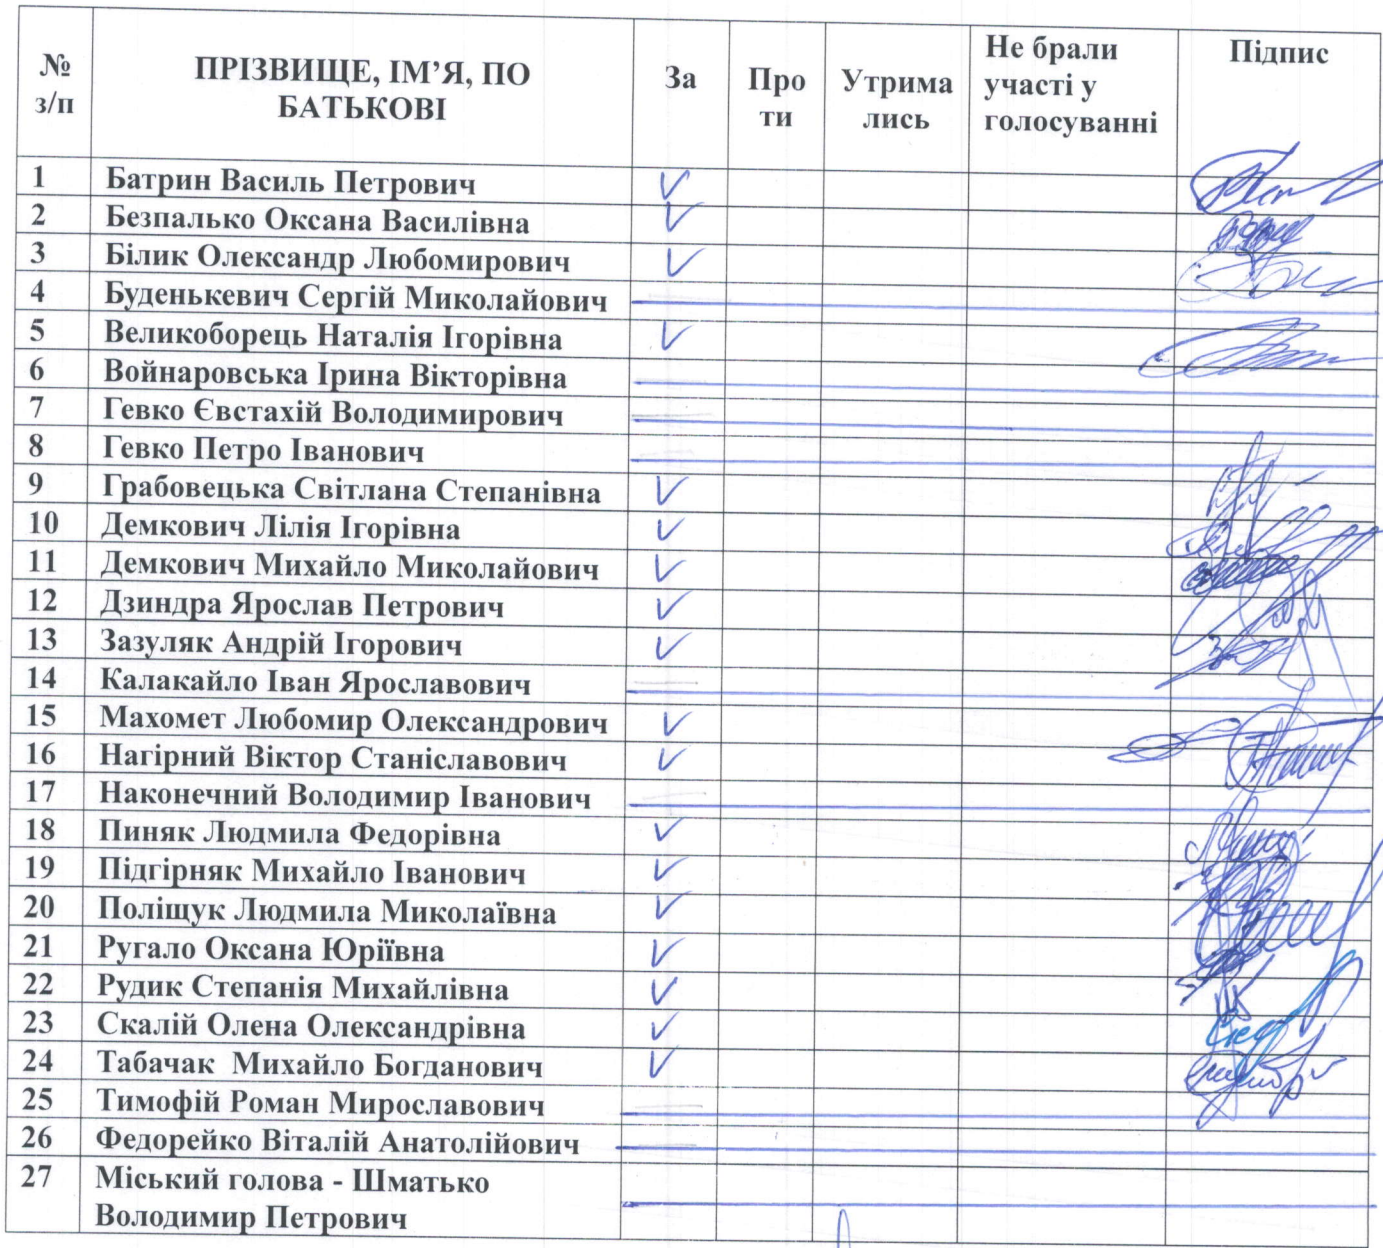 № з/п ПРІЗВИЩЕ, ІМ’Я, ПО БАТЬКОВІ За Про ти Утрима лись Не брали участі у голосуванні Підпис
1 Батрин Василь Петрович V
2 Безпалько Оксана Василівна V
3 Білик Олександр Любомирович V
4 Буденькевич Сергій Миколайович
5 Великоборець Наталія Ігорівна V
6 Войнаровська Ірина Вікторівна
7 Гевко Євстахій Володимирович
8 Гевко Петро Іванович
9 Грабовецька Світлана Степанівна V
10 Демкович Лілія Ігорівна V
11 Демкович Михайло Миколайович V
12 Дзиндра Ярослав Петрович V
13 Зазуляк Андрій Ігорович V
14 Калакайло Іван Ярославович
15 Махомет Любомир Олександрович V
16 Нагірний Віктор Станіславович V
17 Наконечний Володимир Іванович
18 Пиняк Людмила Федорівна V
19 Підгірняк Михайло Іванович V
20 Поліщук Людмила Миколаївна V
21 Ругало Оксана Юріївна V
22 Рудик Степанія Михайлівна V
23 Скалій Олена Олександрівна V
24 Табачак Михайло Богданович V
25 Тимофій Роман Мирославович
26 Федорейко Віталій Анатолійович
27 Міський голова - Шматько
Володимир Петрович